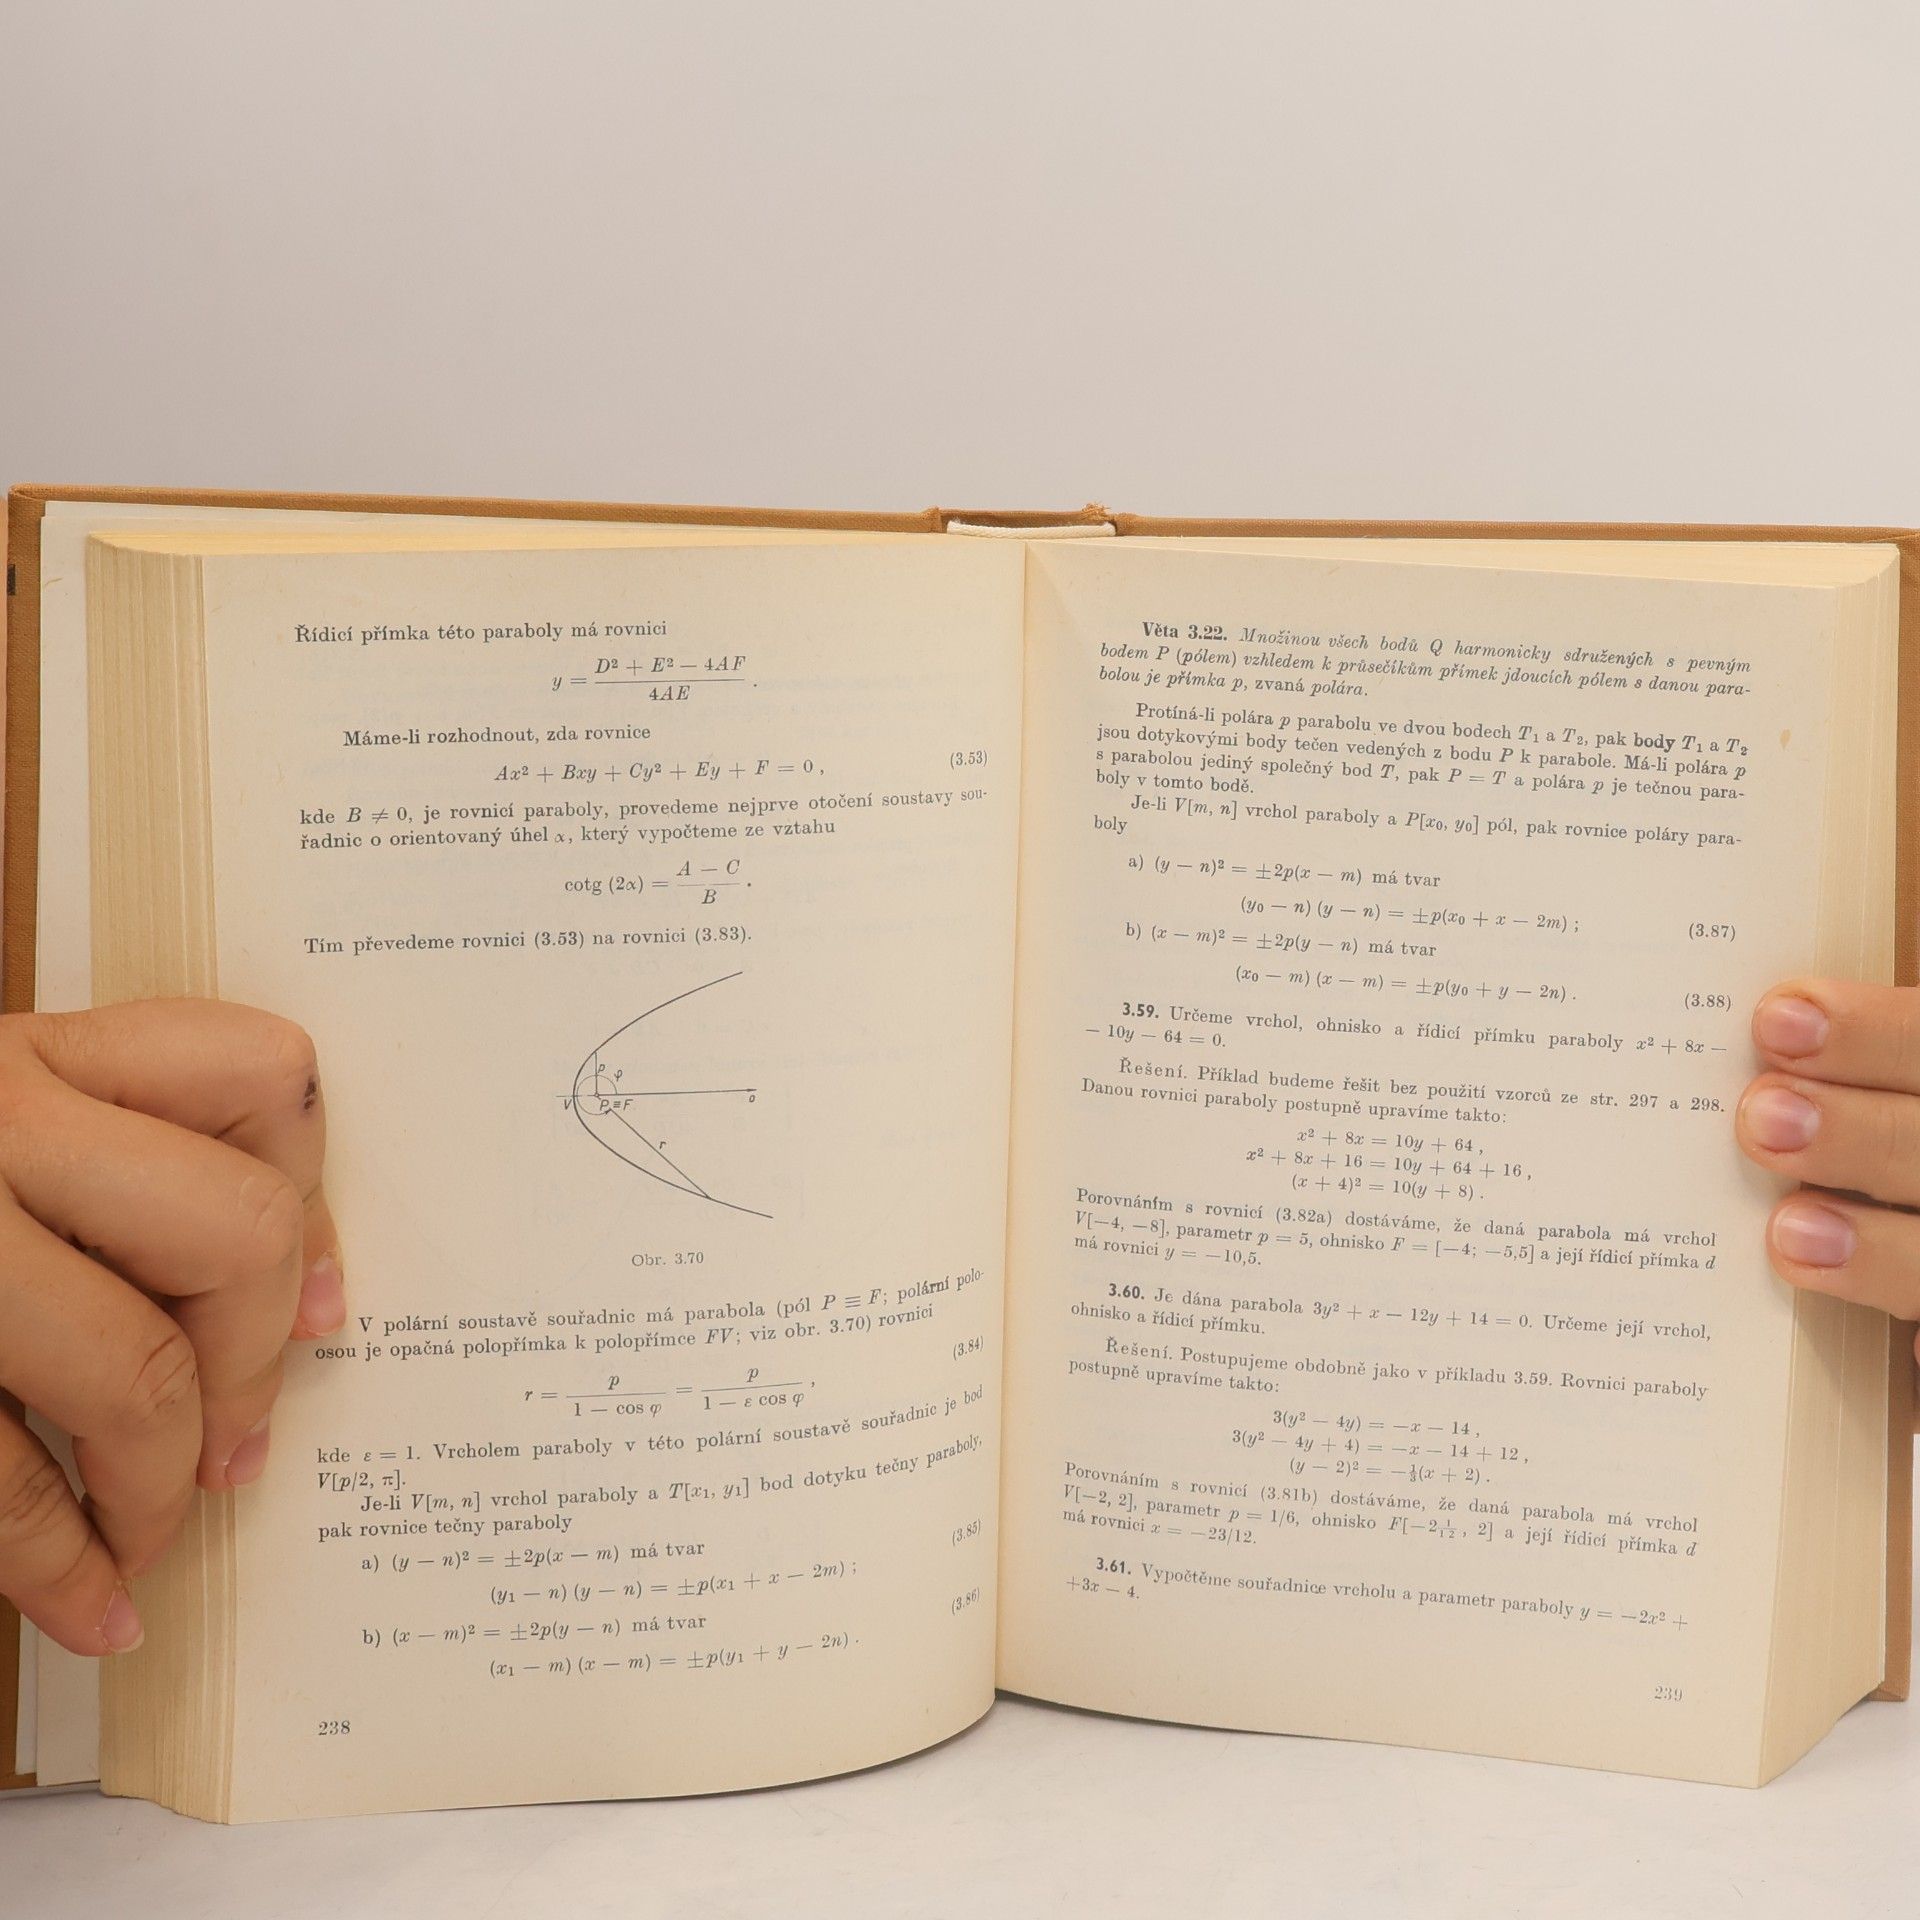 Řídicí přímka této paraboly má rovnici
y = (D² + E² — 4AF)/(4AE) .
Máme-li rozhodnout, zda rovnice
Ax² + Bxy + Cy² + Ey + F = 0 , (3.53)
kde B ≠ 0, je rovnicí paraboly, provedeme nejprve otočení soustavy sou-
řadnic o orientovaný úhel α, který vypočteme ze vztahu
cotg (2α) = (A — C)/B .
Tím převedeme rovnici (3.53) na rovnici (3.83).
p φ
V P≡F o
r
Obr. 3.70
V polární soustavě souřadnic má parabola (pól P ≡ F; polární polo-
osou je opačná polopřímka k polopřímce FV; viz obr. 3.70) rovnici
r = p/(1 — cos φ) = p/(1 — ε cos φ) , (3.84)
kde ε = 1. Vrcholem paraboly v této polární soustavě souřadnic je bod
V[p/2, π].
Je-li V[m, n] vrchol paraboly a T[x₁, y₁] bod dotyku tečny paraboly,
pak rovnice tečny paraboly
a) (y — n)² = ±2p(x — m) má tvar
(y₁ — n) (y — n) = ±p(x₁ + x — 2m) ; (3.85)
b) (x — m)² = ±2p(y — n) má tvar
(x₁ — m) (x — m) = ±p(y₁ + y — 2n) . (3.86)
238
Věta 3.22. Množinou všech bodů Q harmonicky sdružených s pevným
bodem P (pólem) vzhledem k průsečíkům přímek jdoucích pólem s danou para-
bolou je přímka p, zvaná polára.
Protíná-li polára p parabolu ve dvou bodech T₁ a T₂, pak body T₁ a T₂
jsou dotykovými body tečen vedených z bodu P k parabole. Má-li polára p
s parabolou jediný společný bod T, pak P = T a polára p je tečnou para-
boly v tomto bodě.
Je-li V[m, n] vrchol paraboly a P[x₀, y₀] pól, pak rovnice poláry para-
boly
a) (y — n)² = ±2p(x — m) má tvar
(y₀ — n) (y — n) = ±p(x₀ + x — 2m) ; (3.87)
b) (x — m)² = ±2p(y — n) má tvar
(x₀ — m) (x — m) = ±p(y₀ + y — 2n) . (3.88)
3.59. Určeme vrchol, ohnisko a řídicí přímku paraboly x² + 8x —
— 10y — 64 = 0.
Řešení. Příklad budeme řešit bez použití vzorců ze str. 297 a 298.
Danou rovnici paraboly postupně upravíme takto:
x² + 8x = 10y + 64 ,
x² + 8x + 16 = 10y + 64 + 16 ,
(x + 4)² = 10(y + 8) .
Porovnáním s rovnicí (3.82a) dostáváme, že daná parabola má vrchol
V[—4, —8], parametr p = 5, ohnisko F = [—4; —5,5] a její řídicí přímka d
má rovnici y = —10,5.
3.60. Je dána parabola 3y² + x — 12y + 14 = 0. Určeme její vrchol,
ohnisko a řídicí přímku.
Řešení. Postupujeme obdobně jako v příkladu 3.59. Rovnici paraboly
postupně upravíme takto:
3(y² — 4y) = —x — 14 ,
3(y² — 4y + 4) = —x — 14 + 12 ,
(y — 2)² = —⅓(x + 2) .
Porovnáním s rovnicí (3.81b) dostáváme, že daná parabola má vrchol
V[—2, 2], parametr p = 1/6, ohnisko F[—2 1/12, 2] a její řídicí přímka d
má rovnici x = —23/12.
3.61. Vypočtěme souřadnice vrcholu a parametr paraboly y = —2x² +
+3x — 4.
239